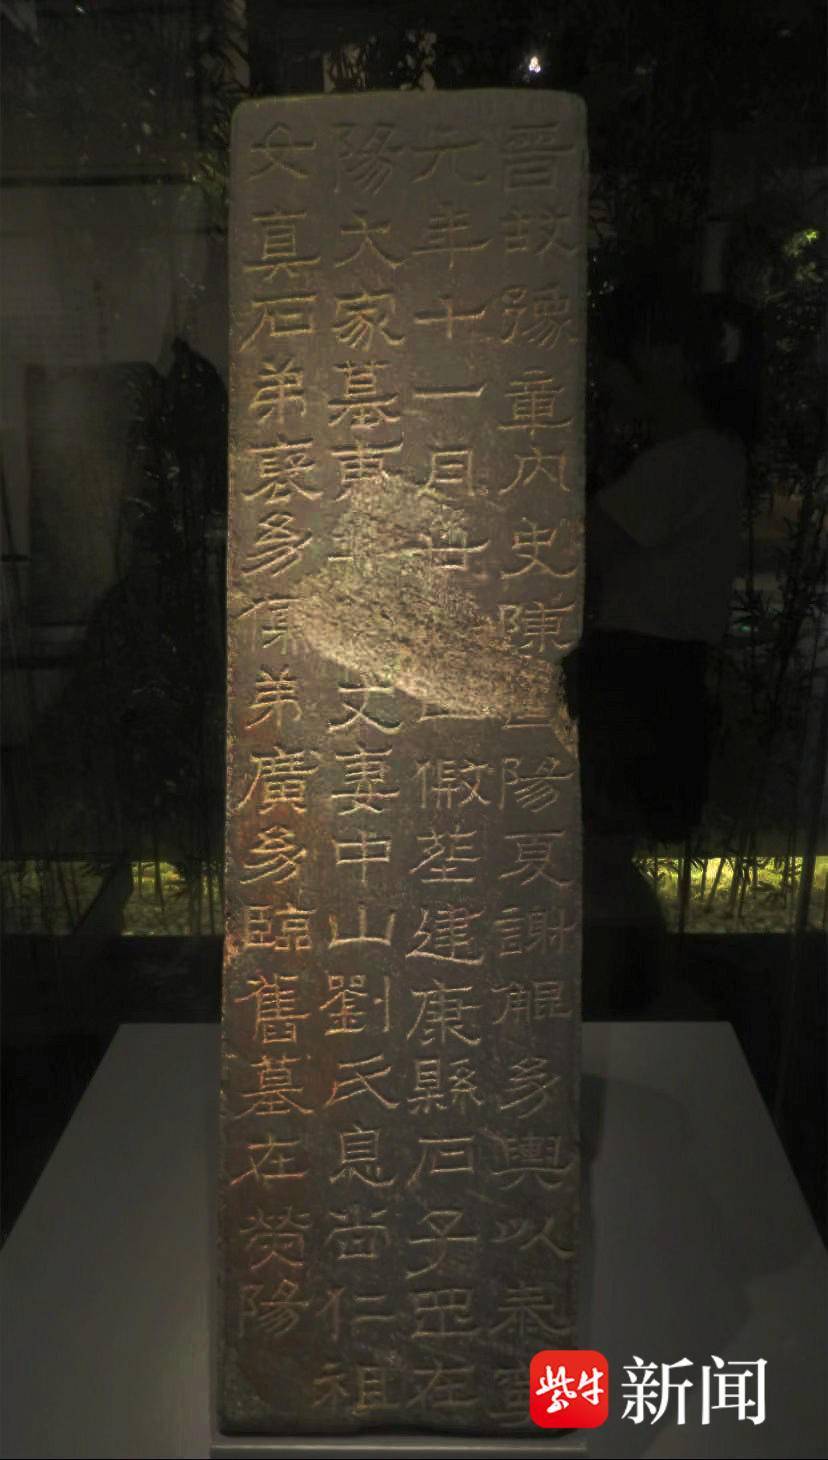 晉故豫章內史陳國陽夏謝鯤幼輿以泰寧
元年十一月廿假葬建康縣石子罡在
陽大家墓東北丈妻中山劉氏息尚仁祖
女真石弟襃幼儒弟廣幼臨舊墓在熒陽
紫牛新闻